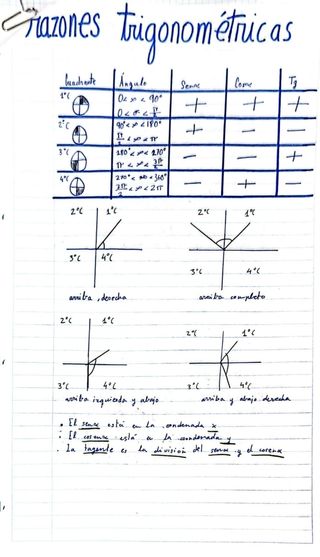 razones trigonométricas
Cuadrante Ángulo Seno Cose Tg
1°C 0 < α < 90° + + +
0 < α < π/2
2°C 90° < α < 180° + − −
π/2 < α < π
3°C 180° < α < 270° − − +
π < α < 3π/2
4°C 270° < α < 360° − + −
3π/2 < α < 2π
2°C 1°C 2°C 1°C
3°C 4°C 3°C 4°C
arriba, derecha arriba completo
2°C 1°C 2°C 1°C
3°C 4°C 3°C 4°C
arriba izquierda y abajo arriba y abajo derecha
• El seno está en la coordenada x
• El coseno está en la coordenada y
• La tagente es la división del seno y el coseno